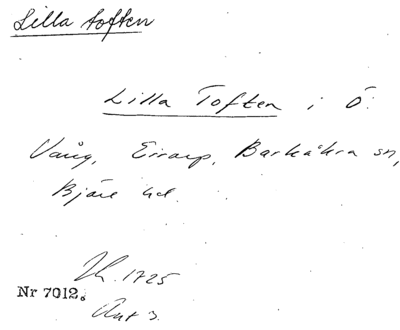 Lilla toften
Lilla Toften i Ö.
Vång, Eirarp, Barkåkra sn,
Bjäre hd.
Lh. 1725
Nr 7012.
Ant 3.